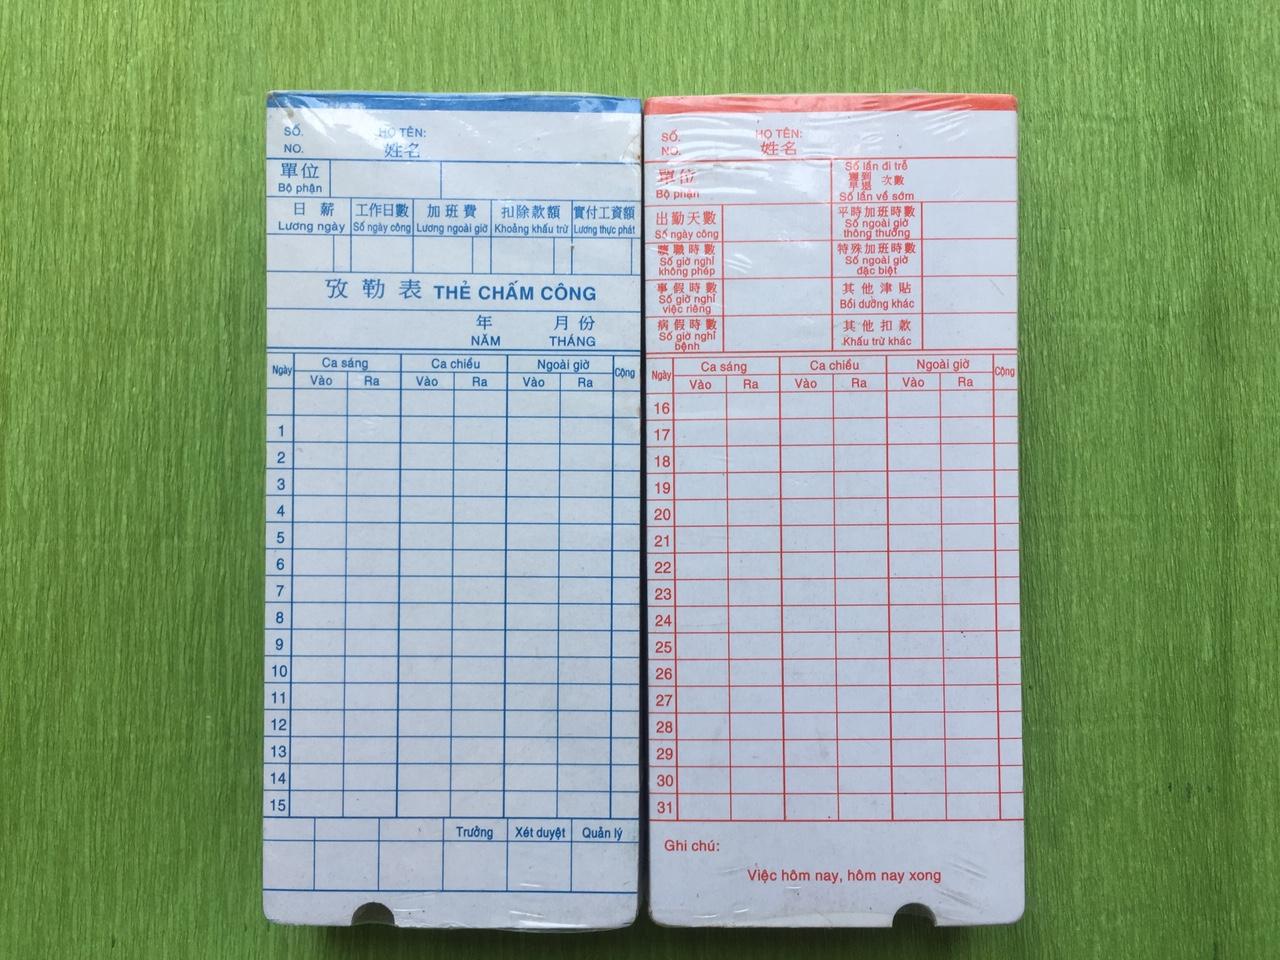 SỐ. HỌ TÊN:
NO. 姓名
單位
Bộ phận
日薪 工作日數 加班費 扣除款額 實付工資額
Lương ngày Số ngày công Lương ngoài giờ Khoảng khấu trừ Lương thực phát
攷勤表 THẺ CHẤM CÔNG
年 月份
NĂM THÁNG
Ngày Ca sáng Ca chiều Ngoài giờ Cộng
Vào Ra Vào Ra Vào Ra
1
2
3
4
5
6
7
8
9
10
11
12
13
14
15
Trưởng Xét duyệt Quản lý
SỐ. HỌ TÊN:
NO. 姓名
單位
Bộ phận
Số lần đi trễ
遲到
早退 次數
Số lần về sớm
出勤天數
Số ngày công
平時加班時數
Số ngoài giờ
thông thường
曠職時數
Số giờ nghỉ
không phép
特殊加班時數
Số ngoài giờ
đặc biệt
事假時數
Số giờ nghỉ
việc riêng
其他津貼
Bồi dưỡng khác
病假時數
Số giờ nghỉ
bệnh
其他扣款
Khấu trừ khác
Ngày Ca sáng Ca chiều Ngoài giờ Cộng
Vào Ra Vào Ra Vào Ra
16
17
18
19
20
21
22
23
24
25
26
27
28
29
30
31
Ghi chú:
Việc hôm nay, hôm nay xong